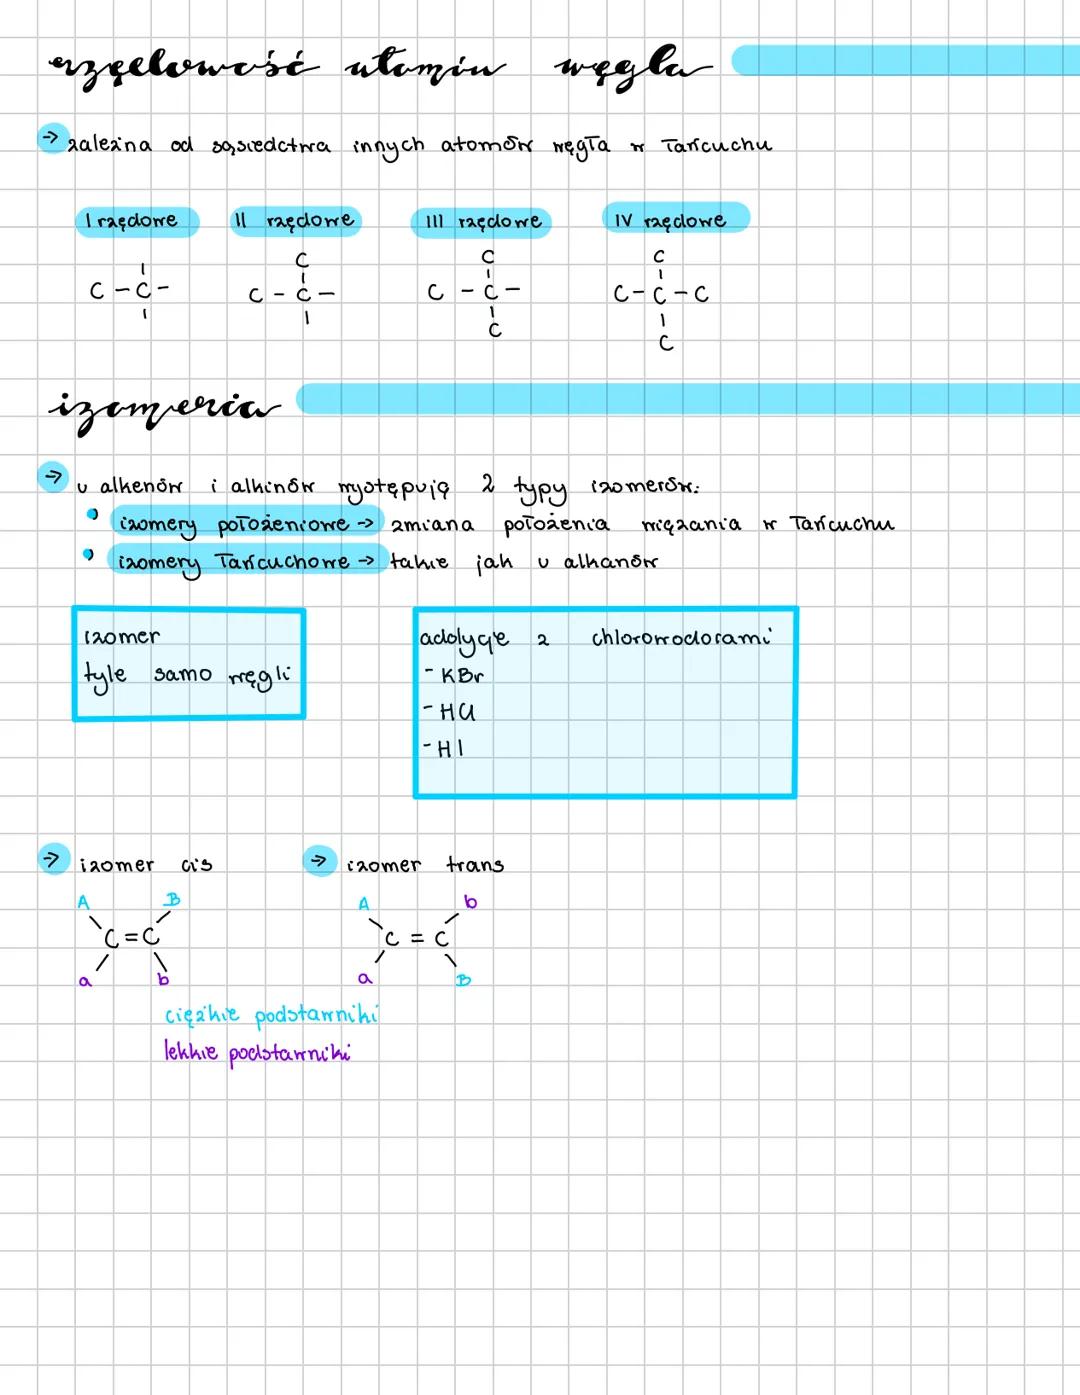 rzędowość atomów węgla
→ zależna od sąsiedctwa innych atomów węgla w łańcuchu
I rzędowe II rzędowe III rzędowe IV rzędowe
C C C
C - C - C - C - C - C - C - C - C
C C
izomeria
→ u alkenów i alkinów występują 2 typy izomerów:
izomery położeniowe → zmiana położenia wiązania w łańcuchu
izomery łańcuchowe → takie jak u alkanów
izomer
tyle samo węgli
addycje z chlorowodorami
- KBr
- HCl
- HI
→ izomer cis → izomer trans
A B A b
C = C C = C
a b a B
ciężkie podstawniki
lekkie podstawniki